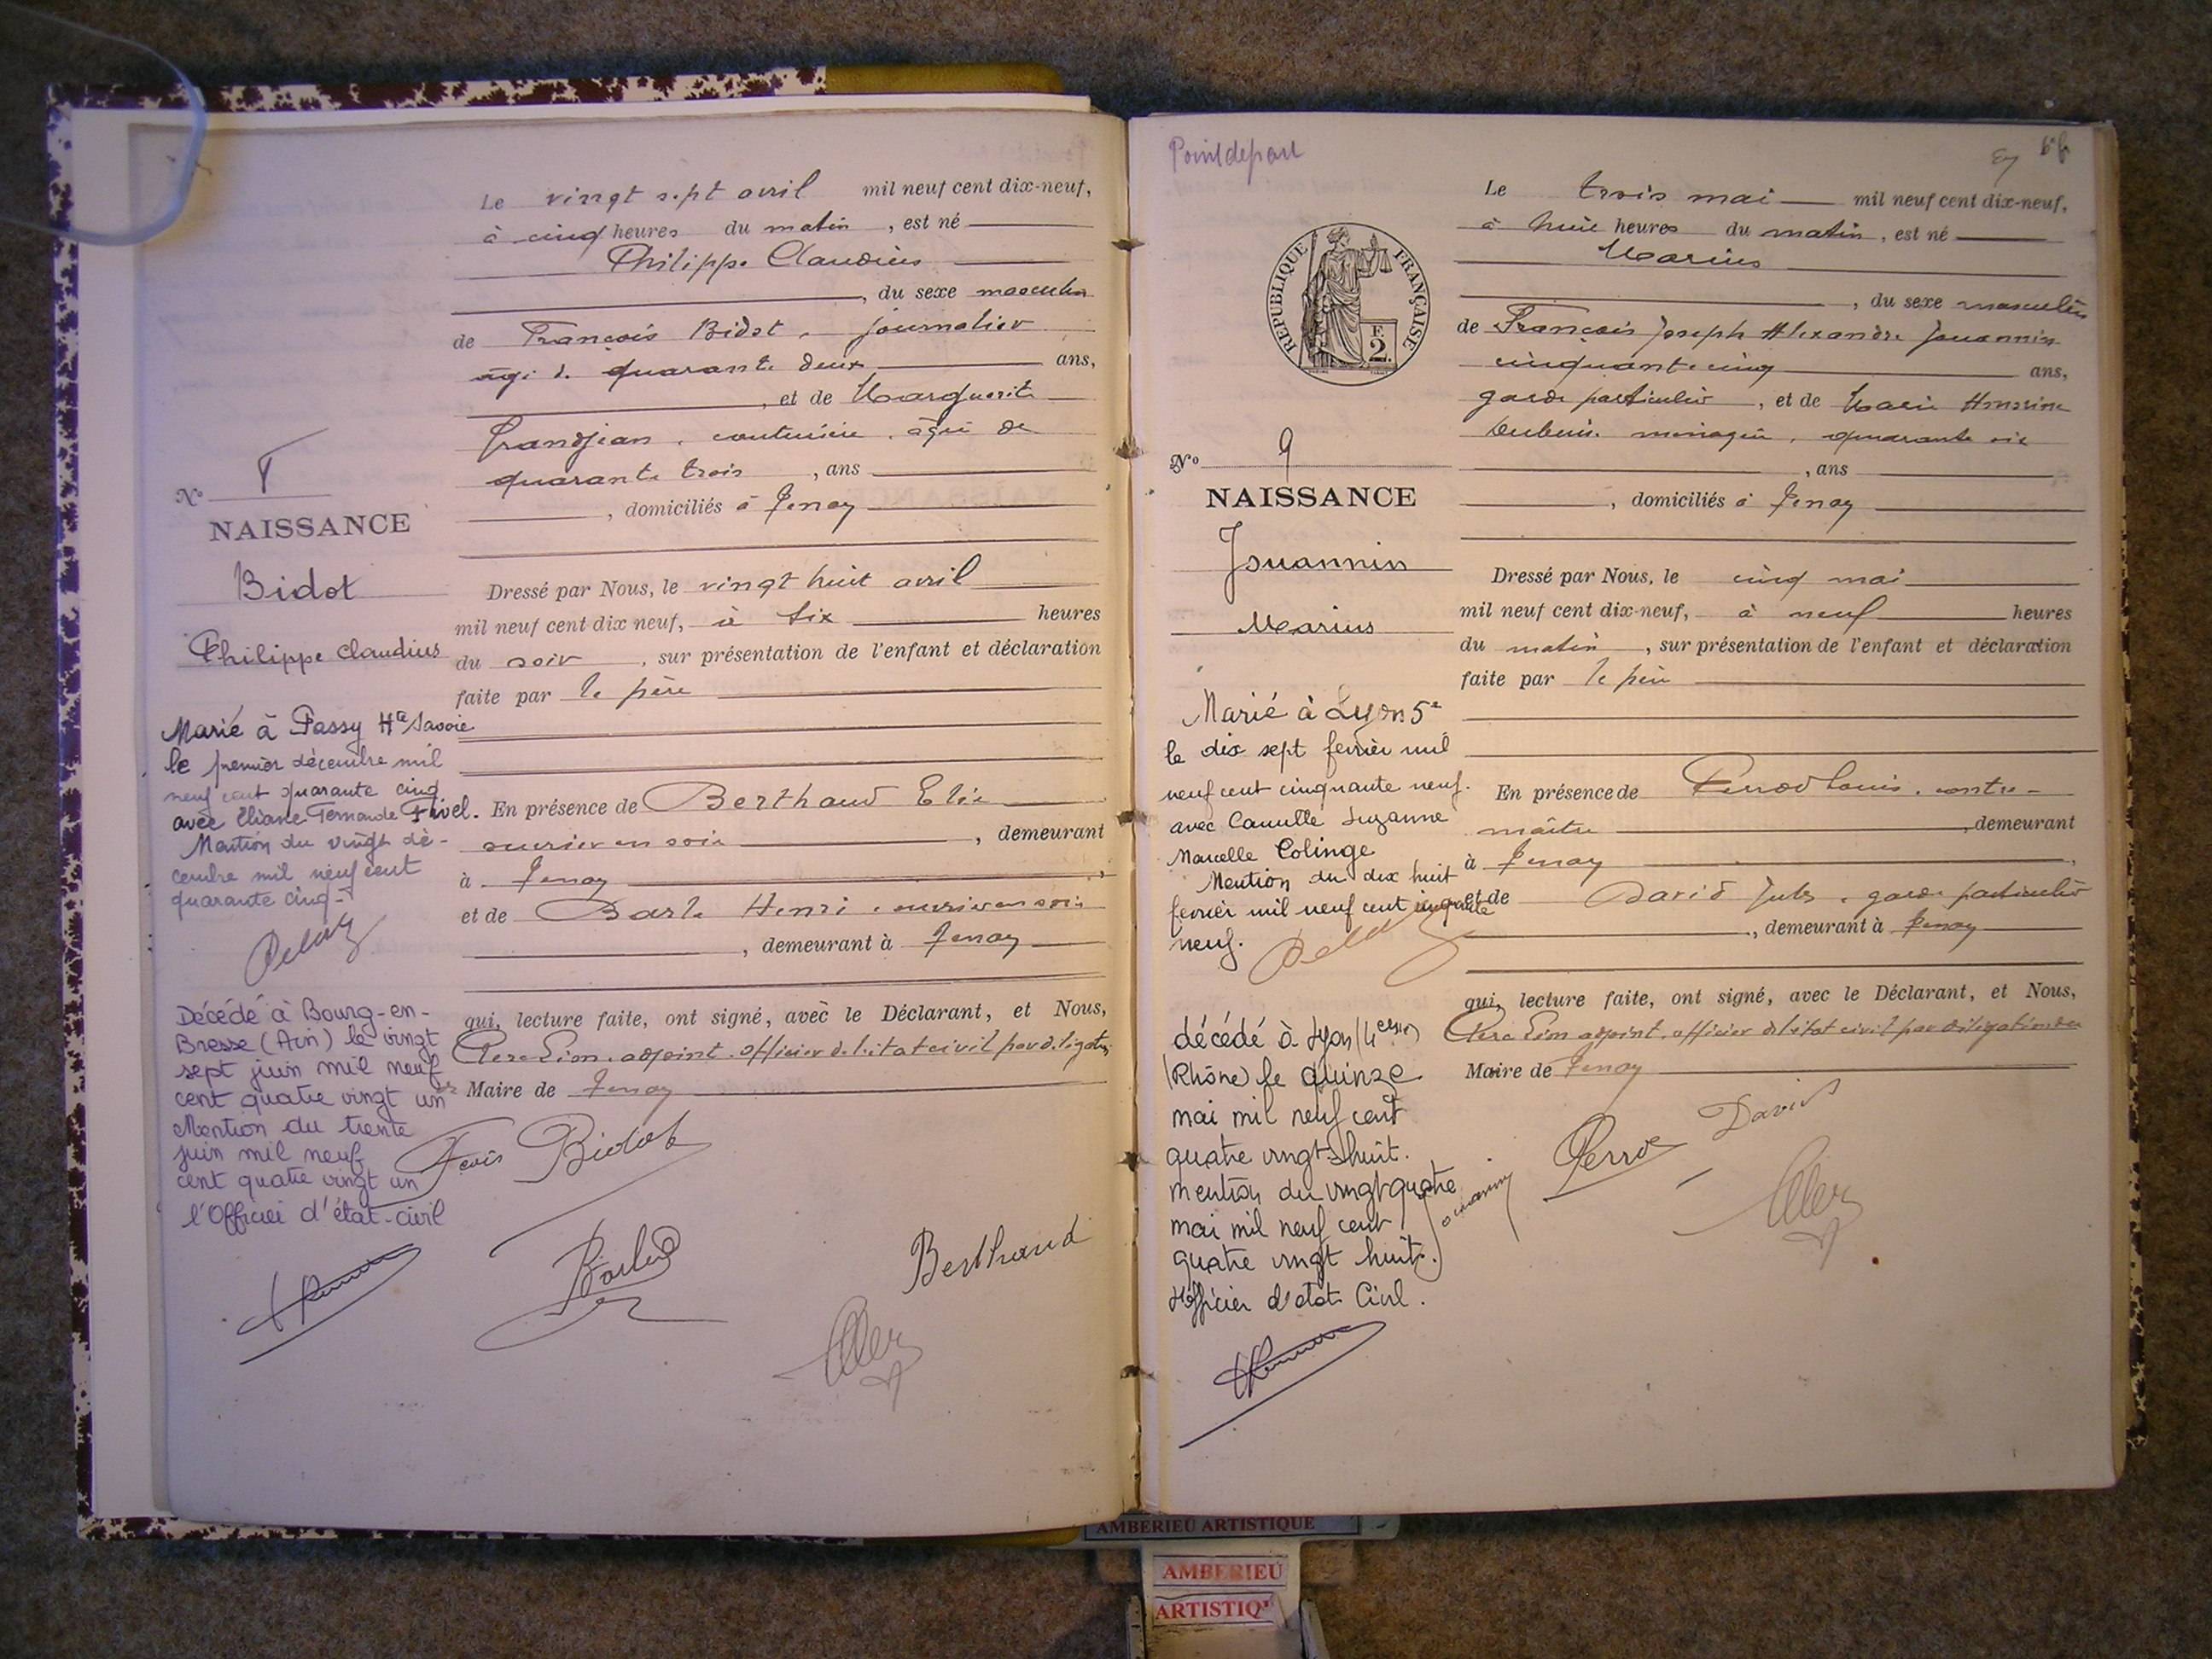 Le vingt sept avril mil neuf cent dix-neuf,
à cinq heures du matin, est né
Philippe Claudius
, du sexe masculin
de François Bidot, journalier
âgé de quarante deux ans,
, et de Marguerite
Grandjean, couturière, âgée de
quarante trois, ans
, domiciliés à Tenay
Dressé par Nous, le vingt huit avril
mil neuf cent dix neuf, à six heures
du soir, sur présentation de l'enfant et déclaration
faite par le père
En présence de Berthaud Elie
ouvrier en soie, demeurant
à Tenay
et de Barle Henri, ouvrier en soie
, demeurant à Tenay
qui, lecture faite, ont signé, avec le Déclarant, et Nous,
adjoint, officier de l'état civil par délégation
Maire de Tenay
Bidot
Berthaud
No 8
NAISSANCE
Bidot
Philippe Claudius
Marié à Passy Hte Savoie
le premier décembre mil
neuf cent quarante cinq
avec Eliane Fernande Fivel.
Mention du vingt dé-
cembre mil neuf cent
quarante cinq-
Décédé à Bourg-en-
Bresse (Ain) le vingt
sept juin mil neuf
cent quatre vingt un
Mention du trente
juin mil neuf
cent quatre vingt un
l'Officier d'état-civil
Point depart
Le trois mai mil neuf cent dix-neuf,
à huit heures du matin, est né
Marius
, du sexe masculin
de François Joseph Alexandre Jouannin
cinquante cinq ans,
garde particulier, et de Marie Honorine
ménagère, quarante six
, ans
, domiciliés à Tenay
Dressé par Nous, le cinq mai
mil neuf cent dix-neuf, à neuf heures
du matin, sur présentation de l'enfant et déclaration
faite par le père
En présence de Perrod Louis, contre-
maître, demeurant
à Tenay,
et de David Jules, garde particulier
, demeurant à Tenay
qui, lecture faite, ont signé, avec le Déclarant, et Nous,
adjoint, officier de l'état civil par délégation du
Maire de Tenay
David
Perrod
Jouannin
RÉPUBLIQUE FRANÇAISE
F.
2.
No 9
NAISSANCE
Jouannin
Marius
Marié à Lyon 5e
le dix sept fevrier mil
neuf cent cinquante neuf.
avec Camille Suzanne
Marcelle Colinge
Mention du dix huit
fevrier mil neuf cent cinquante
neuf.
décédé à Lyon (4e
(Rhône) le quinze
mai mil neuf cent
quatre vingt-huit.
mention du vingt quatre
mai mil neuf cent
quatre vingt huit.
l'Officier d'état Civil.
AMBERIEU ARTISTIQUE
AMBERIEU
ARTISTIQ